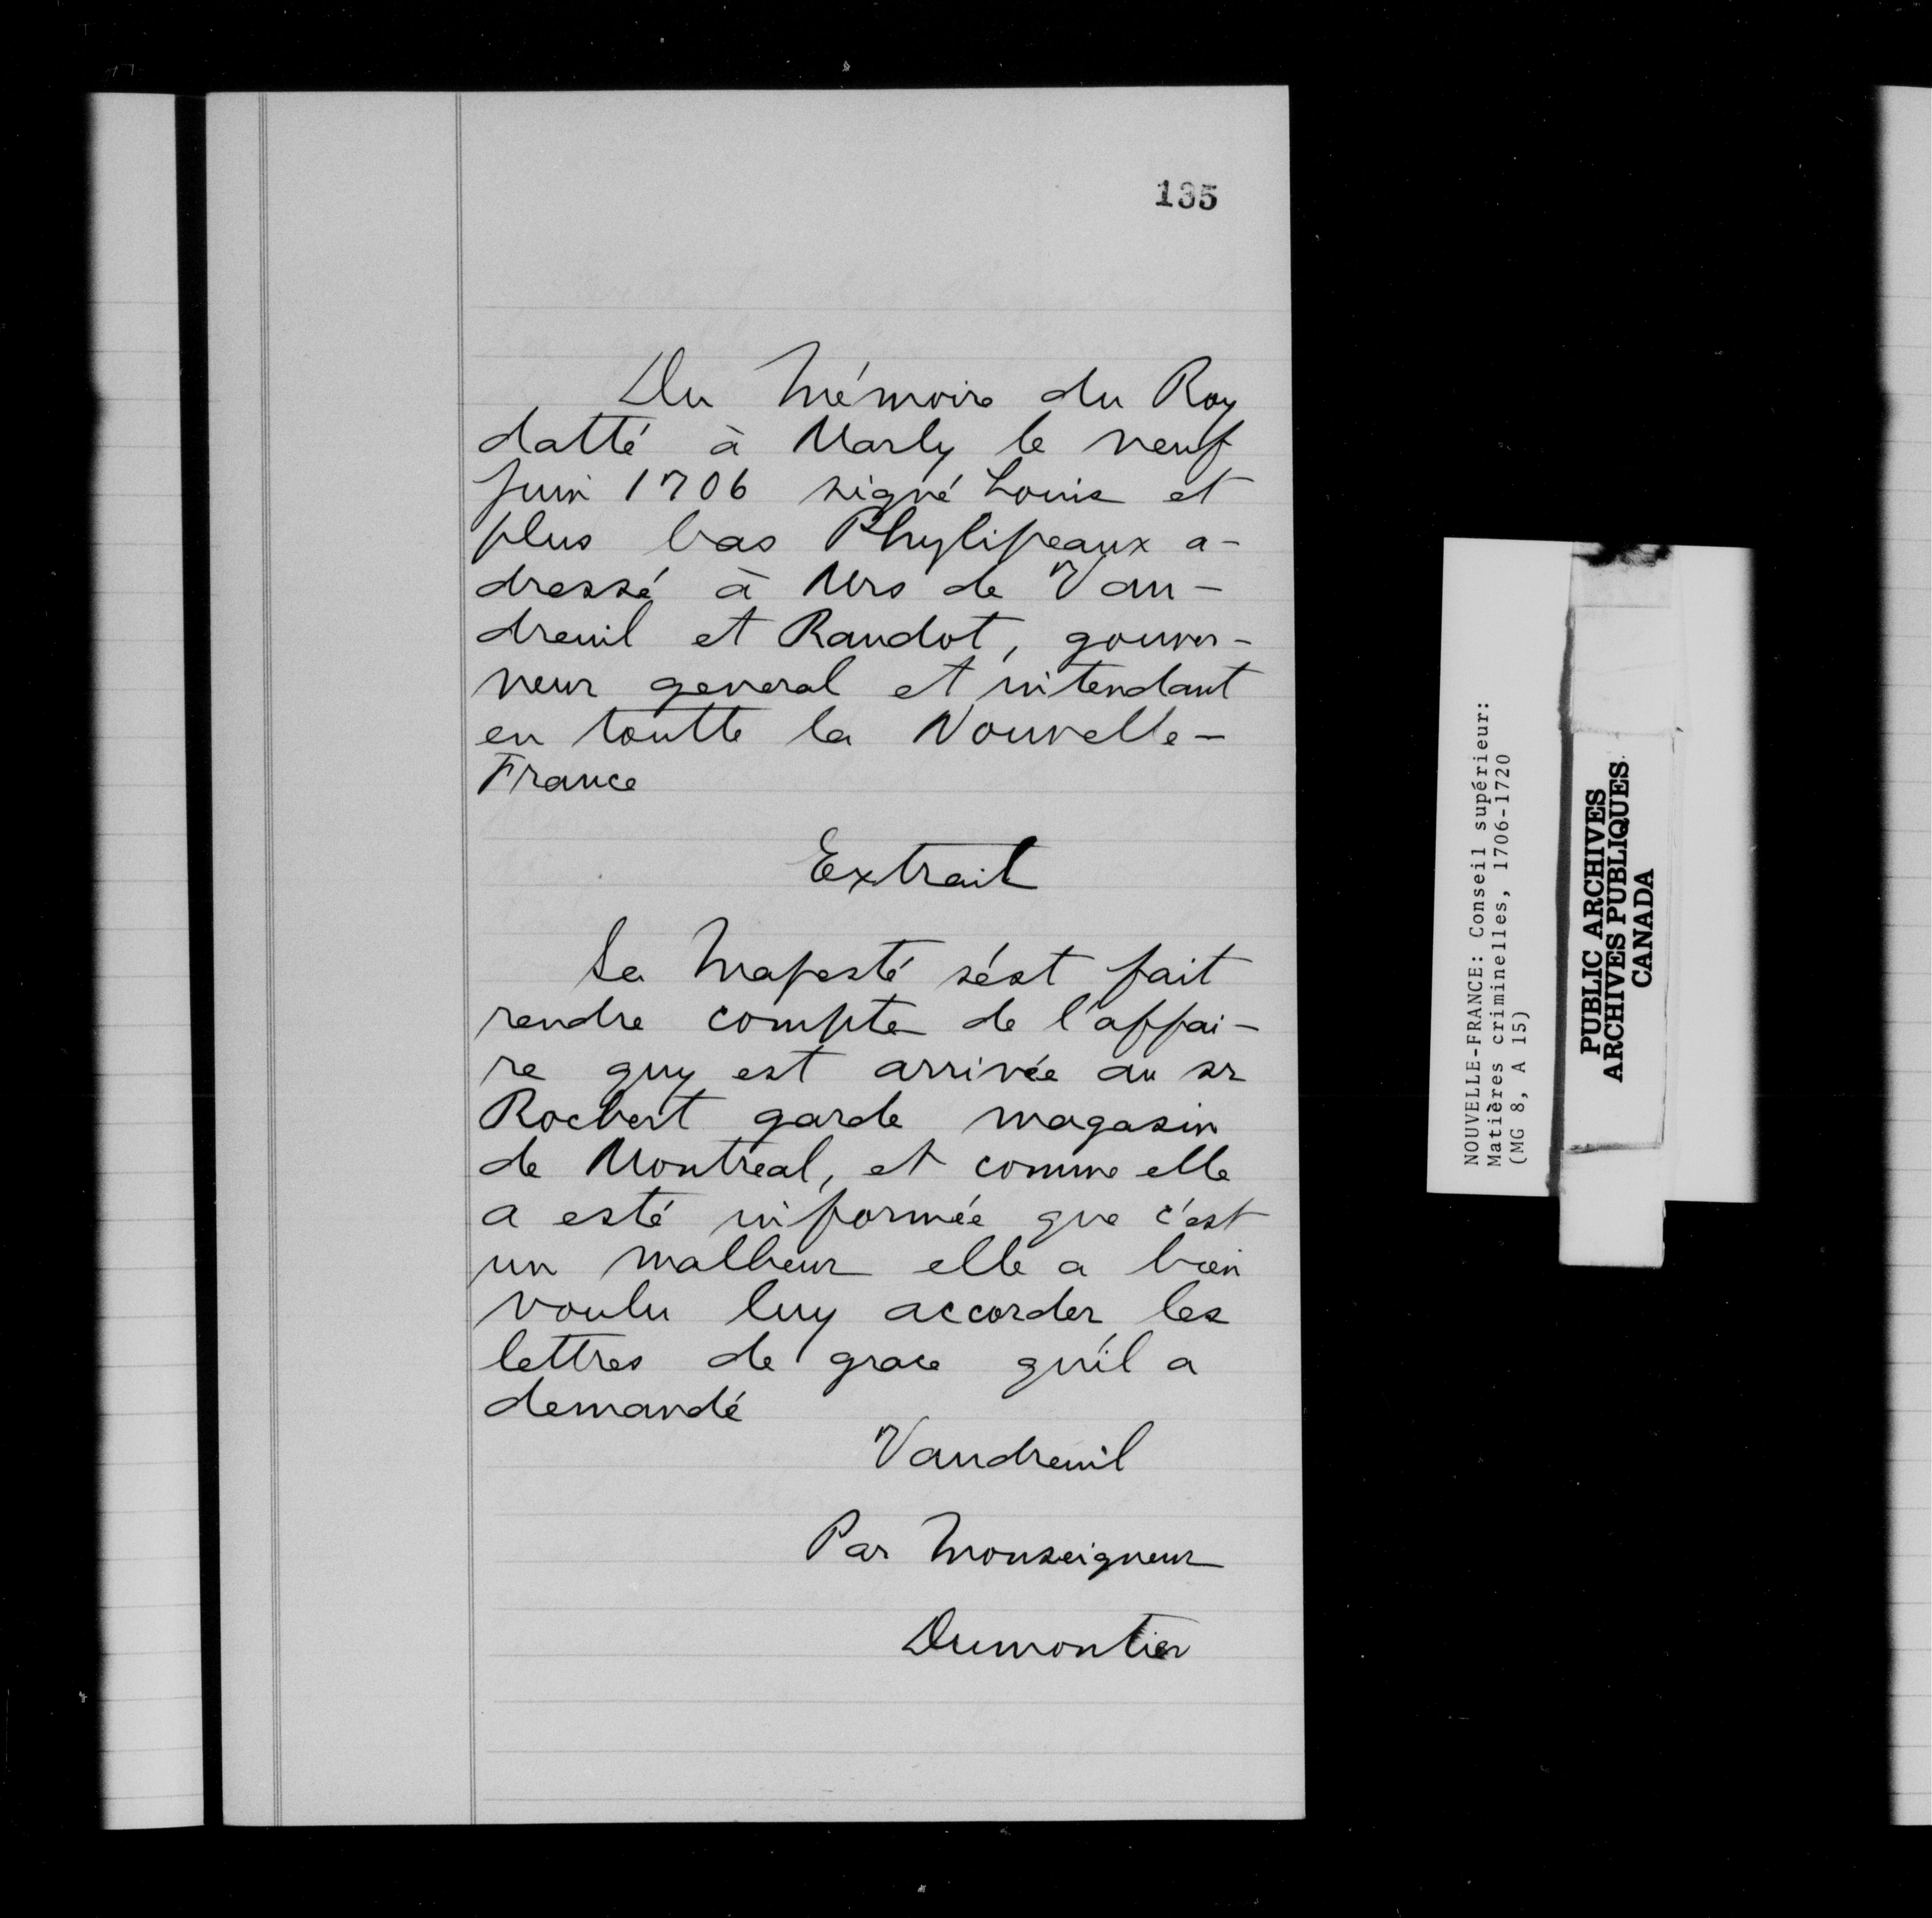 135
Du Mémoire du Roy
datté à Marly le neuf
Juin 1706 signé Louis et
plus bas Phylipeaux a-
dressé à Mrs de Vau-
dreuil et Raudot, gouver-
neur general et intendant
en toutte la Nouvelle-
France
Extrait
Sa Majesté s'est fait
rendre compte de l'affai-
re quy est arrivée au sr
Rocbert garde magasin
de Montreal, et comme elle
a esté informée que c'est
un malheur elle a bien
voulu luy accorder les
lettres de grace qu'il a
demandé
Vaudreuil
Par Monseigneur
Dumontier
NOUVELLE-FRANCE: Conseil supérieur:
Matières criminelles, 1706-1720
(MG 8, A 15)
PUBLIC ARCHIVES
ARCHIVES PUBLIQUES
CANADA